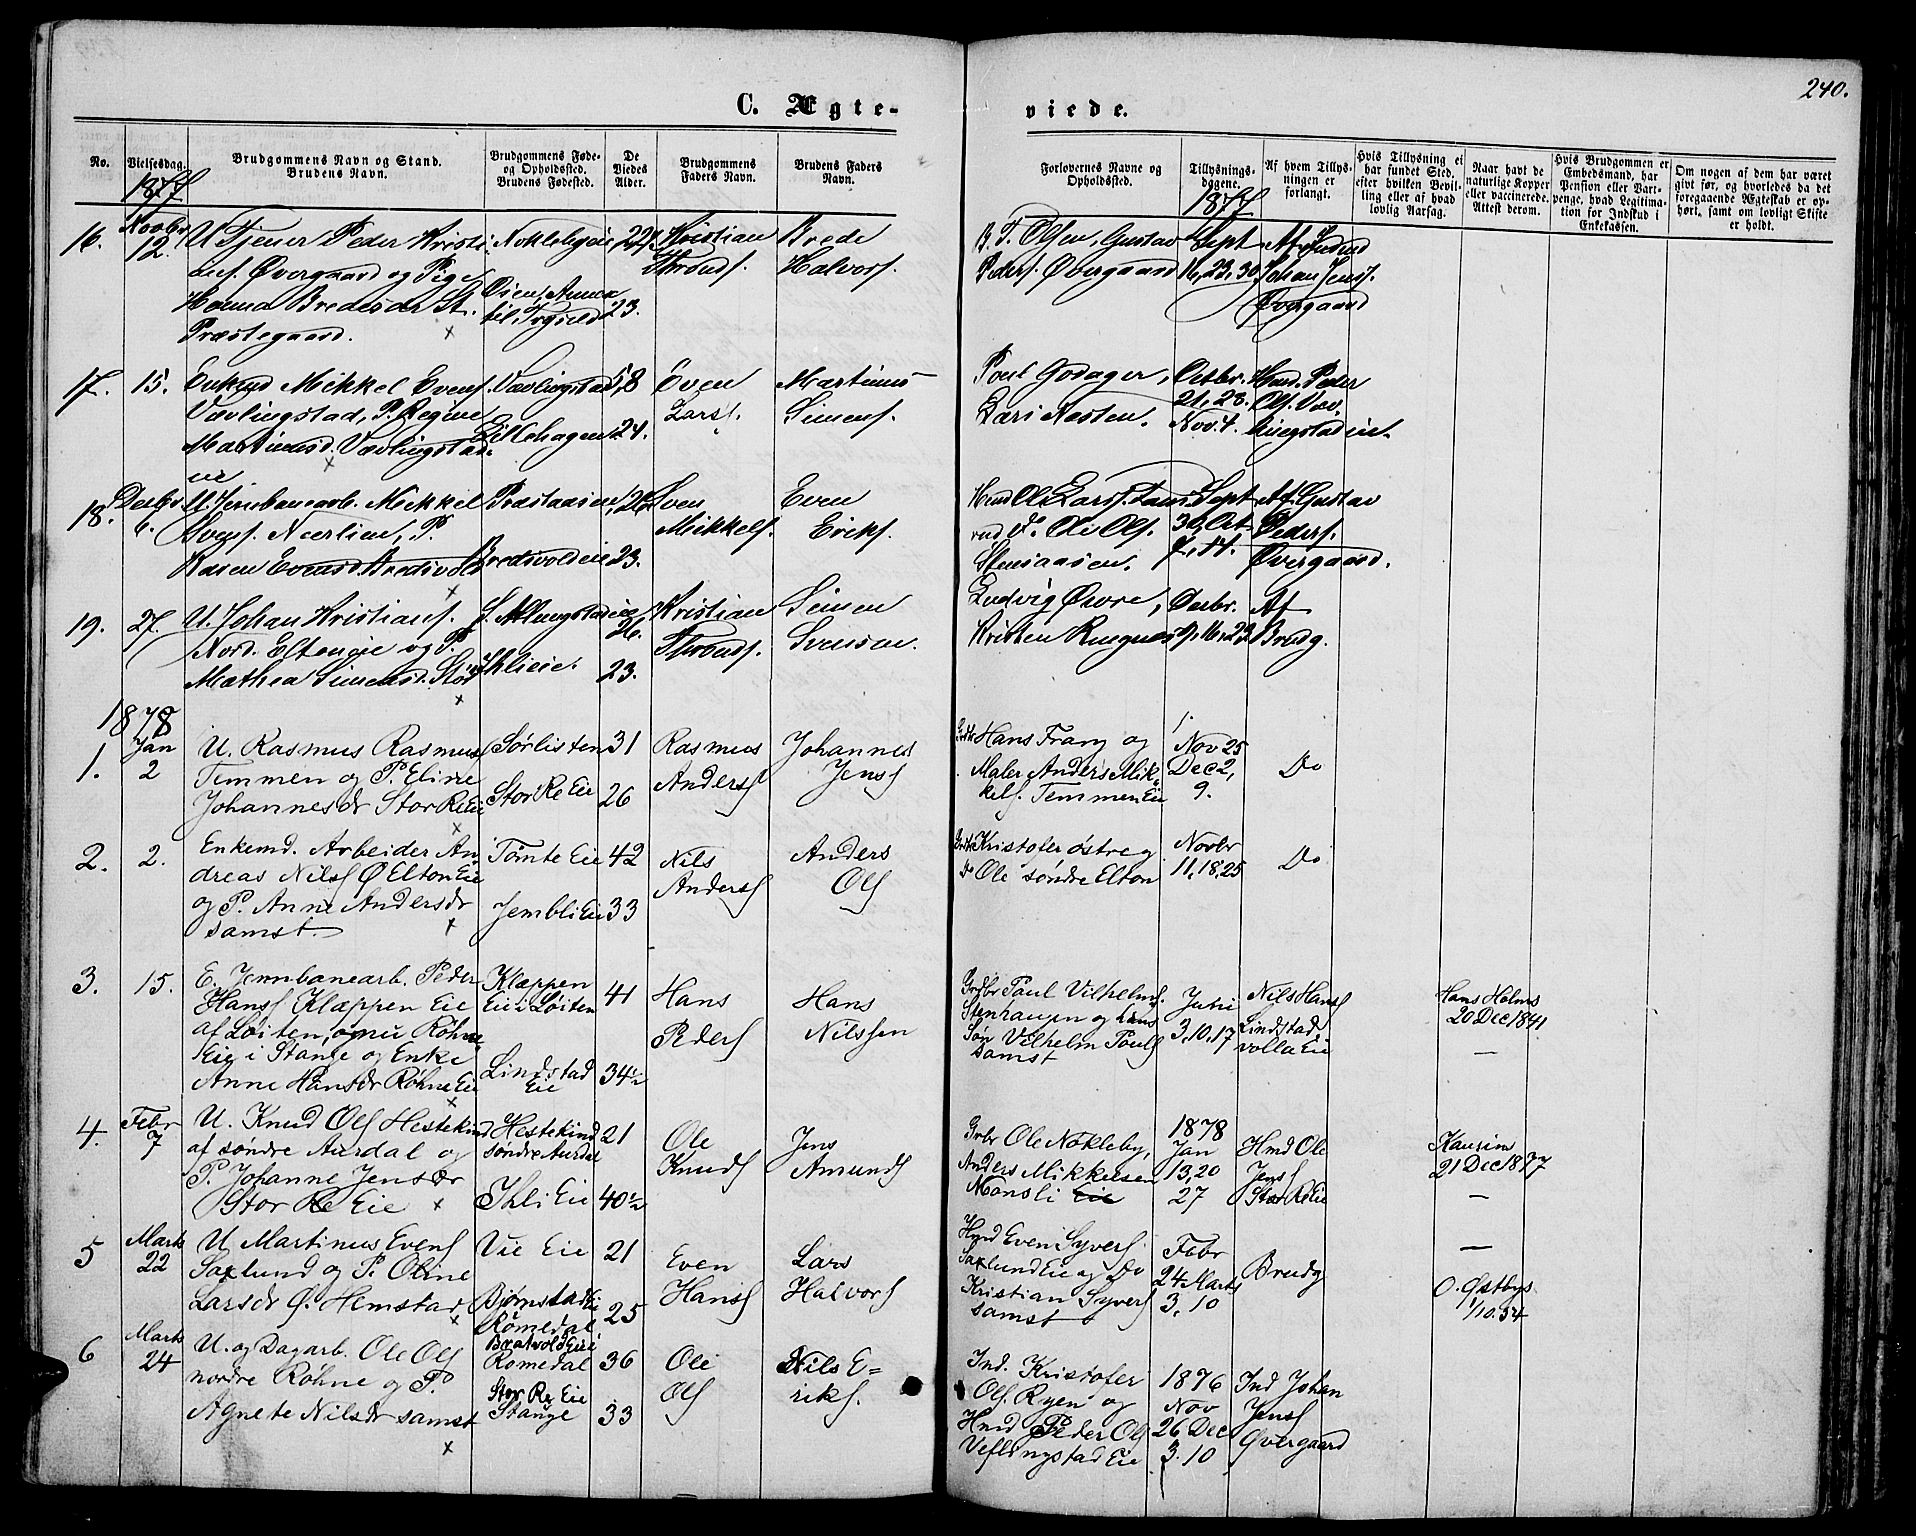 240.
C. Ægte-
viede.
No.
Vielsesdag.
Brudgommens Navn og Stand.
Brudens Navn.
Brudgommens Føde-
og Opholdssted.
Brudens Fødested.
De
Viedes
Alder.
Brudgommens
Faders Navn.
Brudens Faders
Navn.
Forlovernes Navne og
Opholdssted.
Tillysnings-
dagene.
Af hvem Tillys-
ningen er
forlangt.
Hvis Tillysning ei
har fundet Sted,
efter hvilken Bevil-
ling eller af hvad
lovlig Aarsag.
Naar havt de
naturlige Kopper
eller vaccinerede.
Attest derom.
Hvis Brudgommen er
Embedsmand, har
Pension eller Vart-
penge, hvad Legitima-
tion for Indskud i
Enkekassen.
Om nogen af dem har været
givt før, og hvorledes da det
foregaaende Ægteskab er op-
hørt, samt om lovligt Skifte
er holdt.
1877
1877
16.
Novbr
12.
U. Tjener Peder Kristi
ans. Øvergaard og Pige
Hanna Bredesdr St.
Præstegaard.
Nøklebyeie
til Trysild
23.
Kristian
Thronds.
Brede
Halvors.
B. T. Olsen, Gustav
Peders. Øvergaard
Sept
16, 23, 30
Johan Jens.
Øvergaard
17.
15.
Enkemd Mikkel Evens.
Vævlingstad, P. Regine
Martinusd. Vævlingstad
eie
Vævlingstad
Lillehagen
58
24.
Even
Lars.
Martinus
Simens.
Poul Godager,
Lars Nasten.
Octbr.
21, 28.
Nov. 4.
Hmd. Peder
Ols. Væv
lingstadeie.
18.
Decbr
6.
U. Jernbanearb. Mikkel
Svens. Nærlien, P.
Karen Evensd. Bredvold
Bredvoldeie
26
23.
Sven
Mikkels.
Even
Eriks.
Hmd Ole Lars.
rud, do Ole Ols.
Stensaasen.
Sept
30, Oct
7, 14.
Af Gustav
Peders.
Øvergaard.
19.
27.
U. Johan Kristians.
Nord. Eltoneie og P.
Mathea Simensd. Stor
Ihlieie.
26.
23.
Kristian
Thronds.
Simen
Svensen.
Ludvig Øvre,
Kristen Ringnes
Decbr.
9, 16, 23
Af
Brudg.
1878
1.
Jan
2
U. Rasmus Rasmus
Temmen og P. Eline
Johannesdr Stor Re Eie
Sørlisten
Stor Re Eie
31
26
Rasmus
Anders
Johannes
Jens
Hans Frang og
Maler Anders Mik
kels. Temmen Eie
Nov 25
Dec 2,
9.
Do
2.
2.
Enkemd. Arbeider An
dreas Nils Ø Elton Eie
og P. Anne Andersdr
samst.
Tømte Eie
Jembli Eie
42
33
Nils
Anders
Anders
Ols
Kristofer østre og
do Ole søndre Elton
Novbr
11, 18, 25
Do
3.
15.
E. Jernbanearb. Peder
Hans Klæppen Eie
af Løiten, nu Røhne
Eie i Stange og Enke
Anne Hansdr Røhne Eie
Klæppen
Eie i Løiten
Lindstad
Eie
41
34½
Hans
Peders
Hans
Nilssen
Grdbr Poul Vilhelms.
Stenhaugen og hans
Søn Vilhelm Pouls
samst
3, 10, 17
Nils Hans
Lindstad
volla Eie
Hans Holms
20 Dec 1841
—
4.
Febr
7
U. Knud Ols Hestekind
af søndre Aurdal og
P. Johanne Jensdr
Stor Re Eie
Hestekind
søndre Aurdal
Ihli Eie
21
40½
Ole
Knuds
Jens
Amunds
Grbr Ole Nøkleby,
Anders Mikkelsen
Monsli Eie
1878
Jan
13, 20
27
Hmd Ole
Jens
Stor Re Eie
21 Dec 1877
—
5
Marts
22
U Martinus Evens
Saxlund og P. Oline
Larsdr Ø. Hemstad
Vie Eie
Bjørnstad Ei
Romedal
21
25
Even
Hans
Lars
Halvors
Hmd Even Syvers
Saxlund Eie og Do
Kristian Syvers
samst
Febr
24 Marts
3, 10
Brudg
—
O. Østbye
1/10.54
6
Marts
24
U. og Dagarb. Ole Ols
nordre Røhne og P.
Agnete Nilsdr samst
Bratvold Eie i
Romedal
Stor Re Eie
Stange
36
33
Ole
Ols
Nils E=
riks.
Ind. Kristofer
Ols. Ryen og
Hmd Peder Ols
Veflingstad Eie
1876
Nov
26 Dec
3. 10
Ind Johan
Jens
Øvergaard